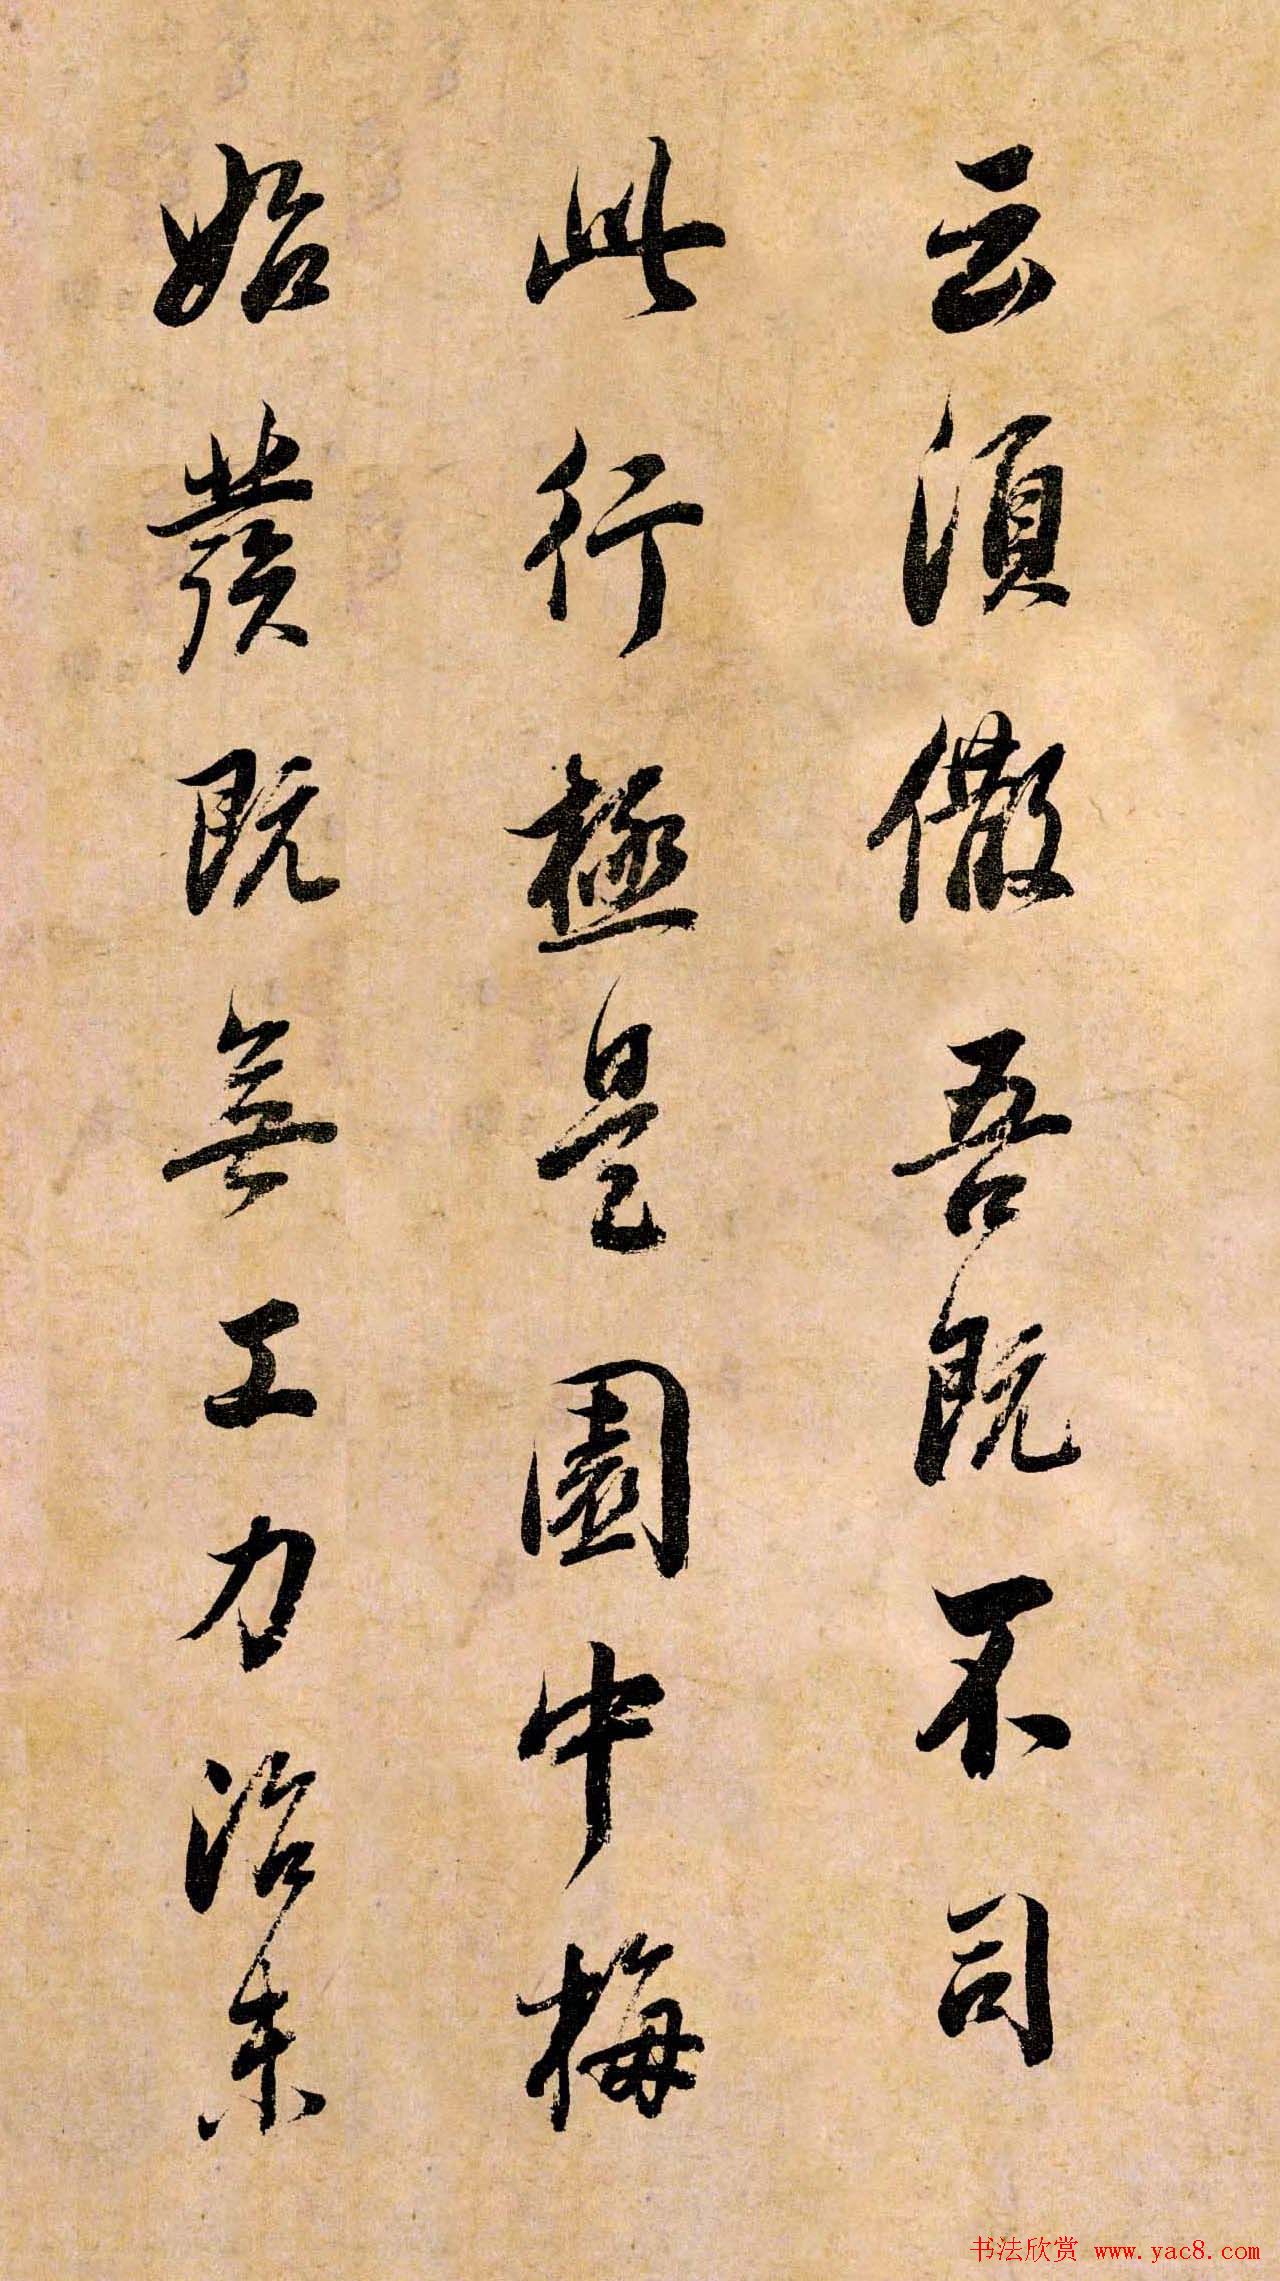 云須儆吾既不司
此行極是園中梅
始發既無工力治未
书法欣赏 www.yac8.com